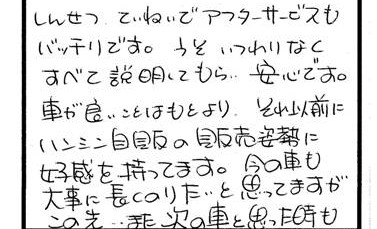 しんせつ、ていねいでアフターサービスも
バッチリです。うそ いつわりなく
すべて説明してもら‥安心です。
車が良いことはもとより、それ以前に
ハンシン自販の販売姿勢に
好感を持ってます。今の車も
大事に長くのりたいと思ってますが
この先‥また次の車と思った時も